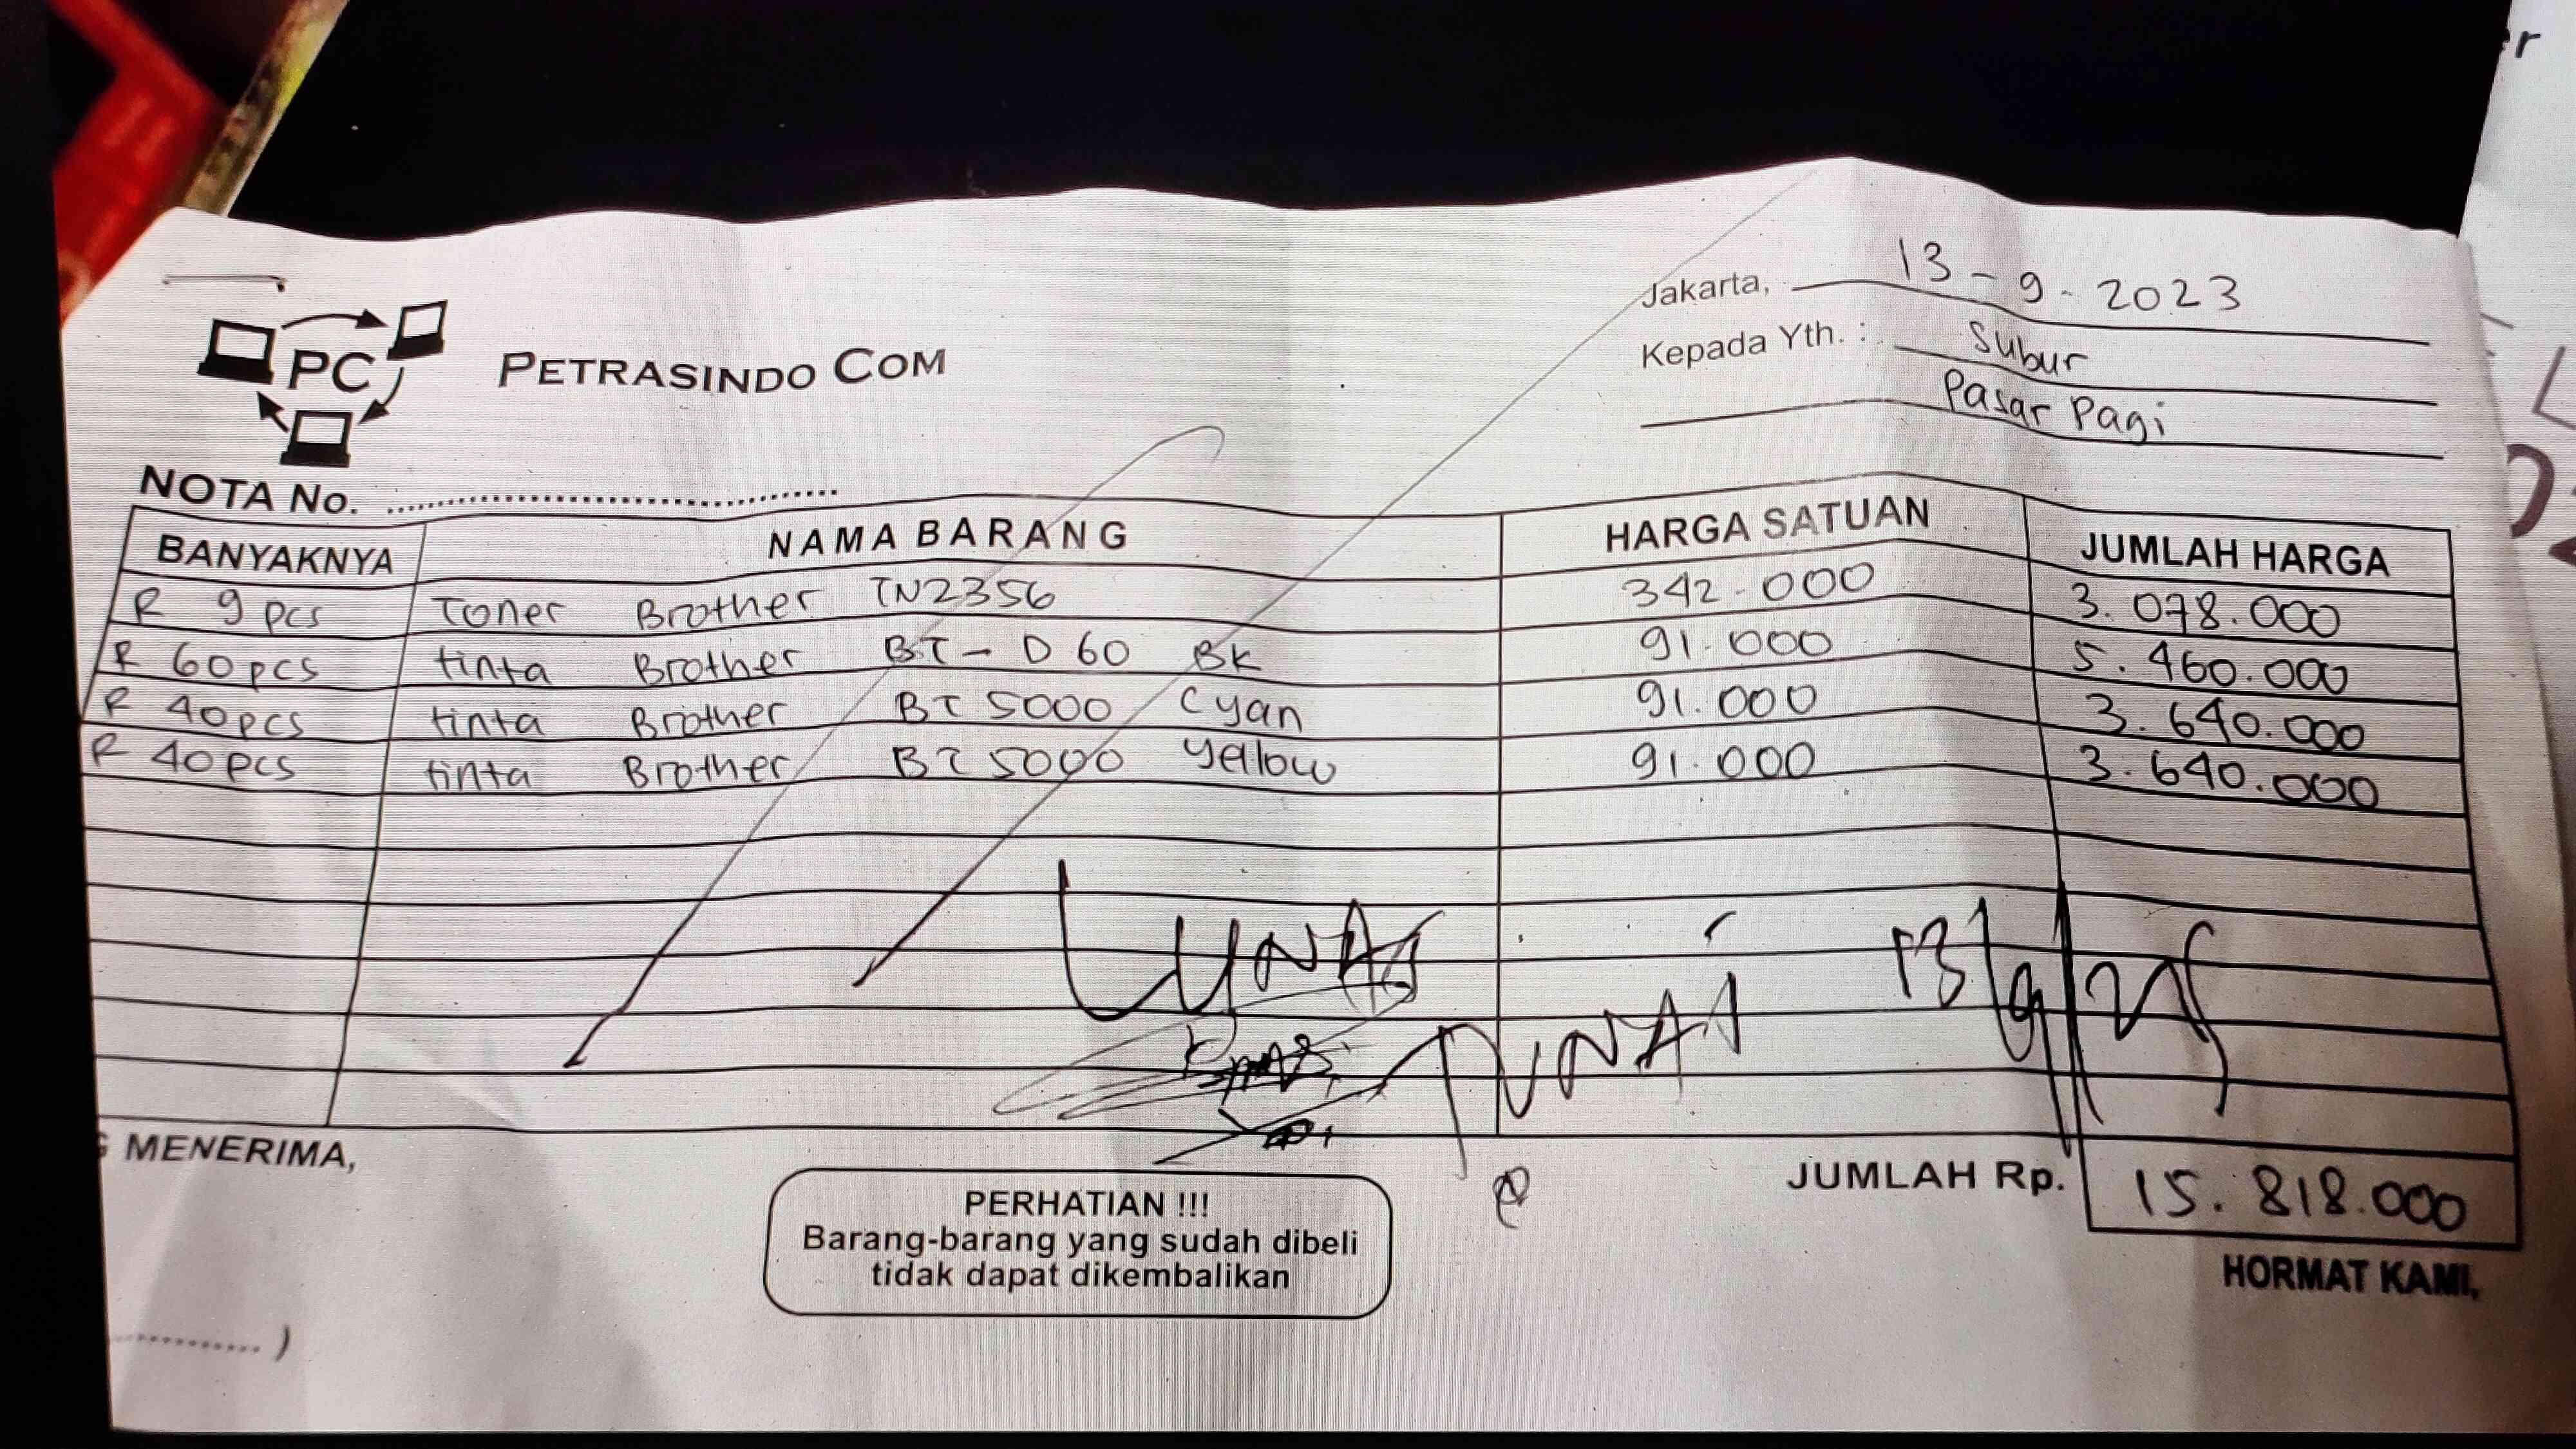 Jakarta, 13-9-2023
Kepada Yth. : Subur
Pasar Pagi
PC PETRASINDO COM
NOTA No. ........................................
BANYAKNYA NAMA BARANG HARGA SATUAN JUMLAH HARGA
R 9 pcs Toner Brother TN2356 342.000 3.078.000
R 60 pcs tinta Brother BT-D60 BK 91.000 5.460.000
R 40 pcs tinta Brother BT 5000 Cyan 91.000 3.640.000
R 40 pcs tinta Brother BT 5000 Yellow 91.000 3.640.000
LUNAS
TUNAI
MENERIMA,
JUMLAH Rp. 15.818.000
PERHATIAN !!!
Barang-barang yang sudah dibeli
tidak dapat dikembalikan
HORMAT KAMI,
............... )